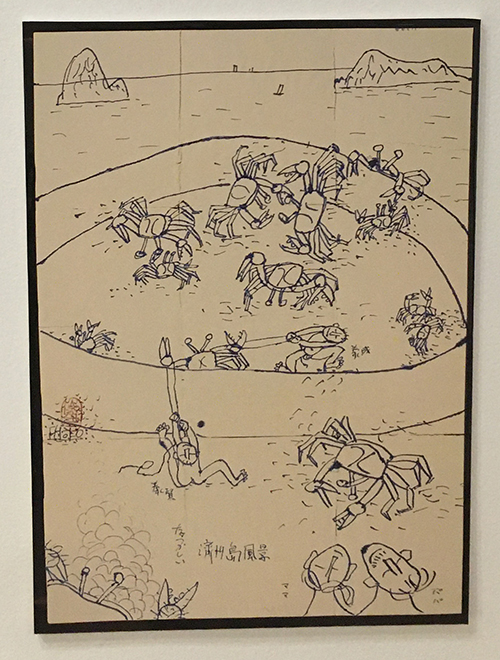 泰成
泰賢
なつかしい
濟州島風景
ママ
パパ